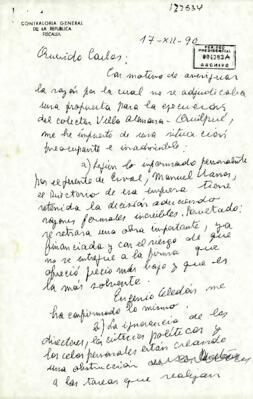 CONTRALORIA GENERAL
DE LA REPUBLICA
FISCALIA
17-XII-90
ARCHIVO
Querido Carlos:
Con motivo de averiguar
la razón por la cual no se adjudicaba
una propuesta para la ejecución
del colector Villa Alemana-Quilpué,
me he impuesto de una situación
preocupante e inadmisible:
a) Según lo informado personalmente
por el gerente de Esval, Manuel
el Directorio de esa empresa tiene
retenida la decisión aduciendo
razones formales increíbles. Resultado:
se retrasa una obra importante, ya
financiada y con el riesgo de que
no se entregue a la firma que
ofreció precio más bajo y que es
la más solvente.
Eugenio Celedón me
ha confirmado lo mismo.
2) La ignorancia de los
directores, los intereses políticos y
los celos personales están creando
una obstrucción
a las tareas que realizan